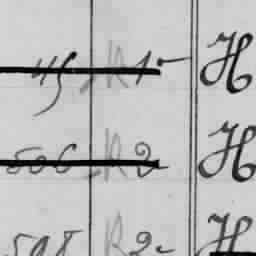 45 R 1- H
506 R 2 H
508 R 2- H